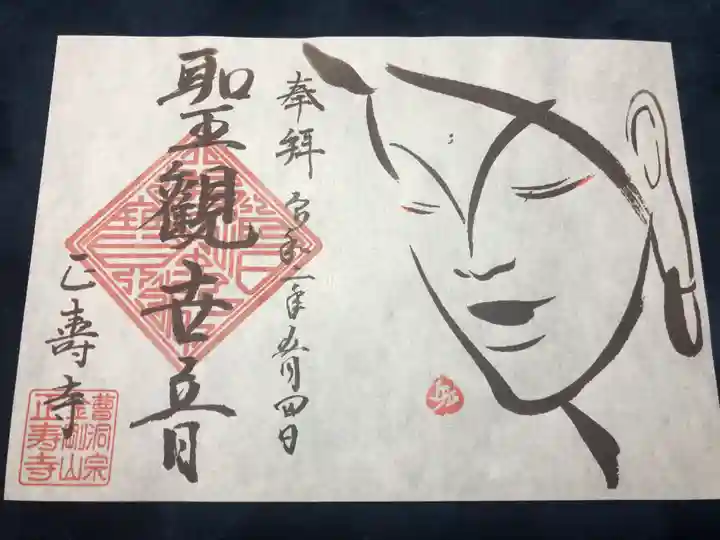 奉拝
令和二年五月四日
聖觀世音
正壽寺
曹洞宗
正寿寺